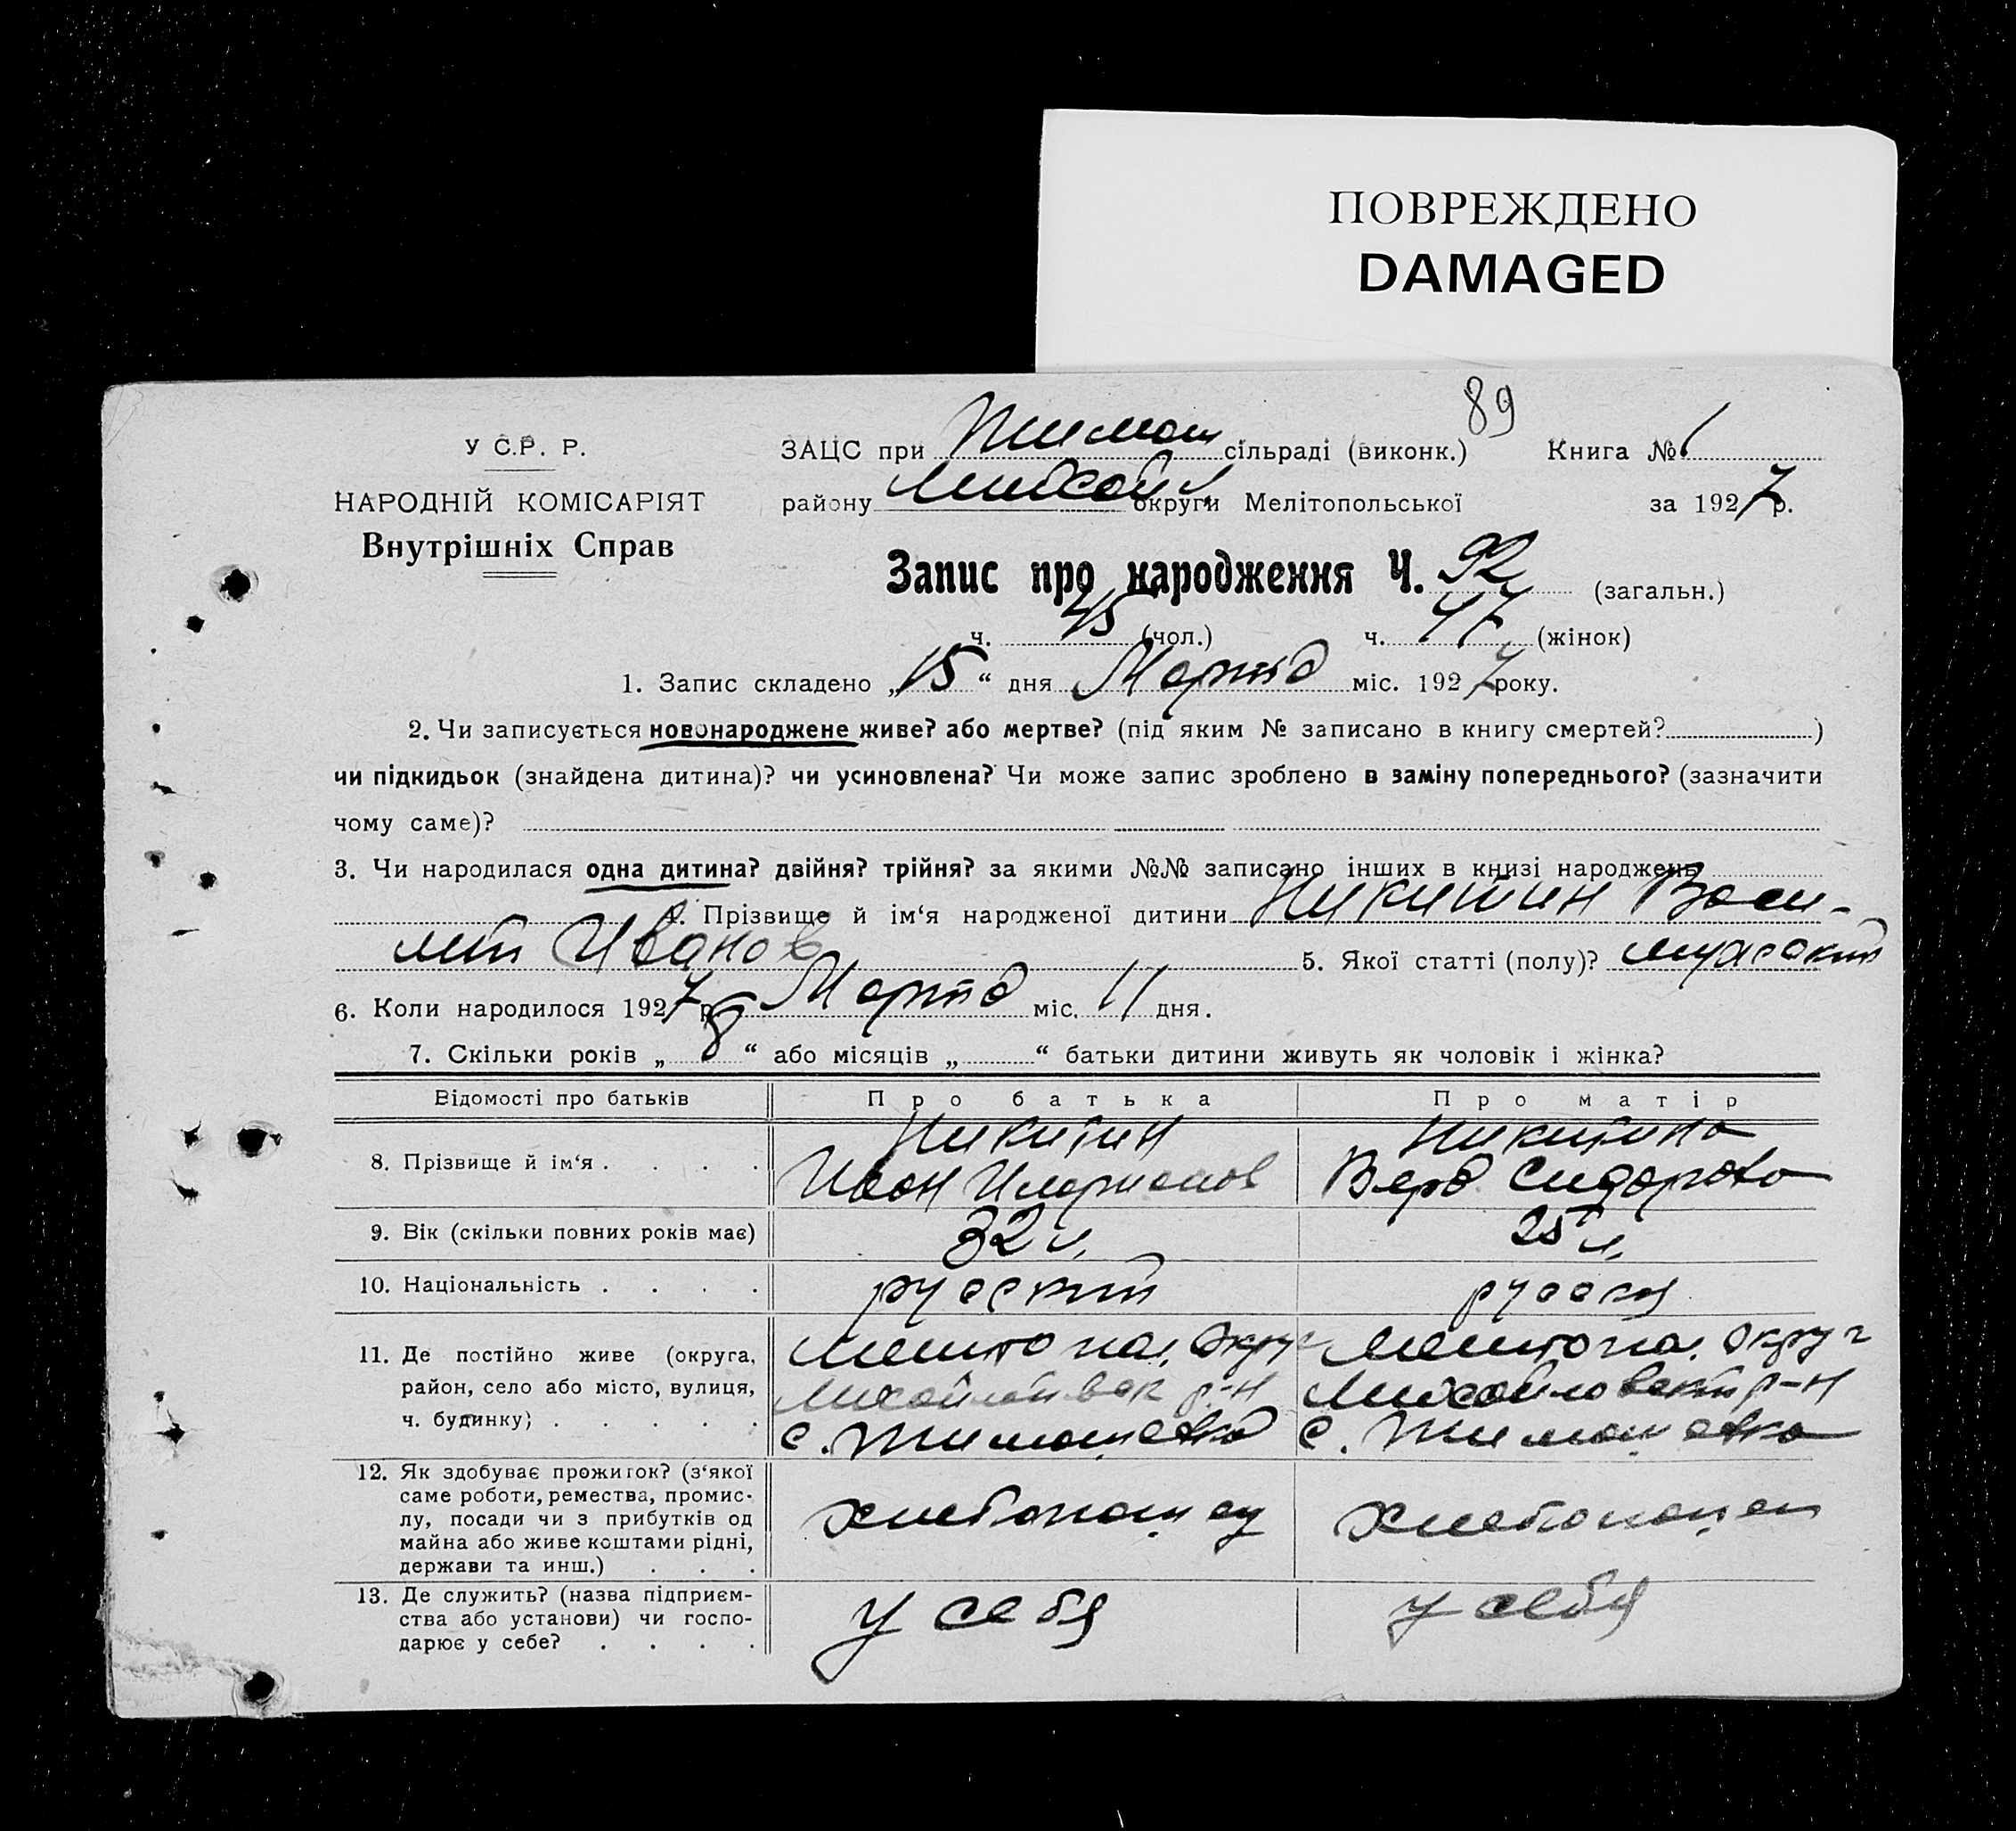 ПОВРЕЖДЕНО
DAMAGED
89
У С.Р. Р.
НАРОДНІЙ КОМІСАРІЯТ
Внутрішніх Справ
ЗАЦС при Тимош сільраді (виконк.) Книга № 1
району Михайл округи Мелітопольської за 1927 р.
Запис про народження Ч. 92 (загальн.)
ч. 45 (чол.) ч. 47 (жінок)
1. Запис складено „15“ дня Марта міс. 1927 року.
2. Чи записується новонароджене живе? або мертве? (під яким № записано в книгу смертей? )
чи підкидьок (знайдена дитина)? чи усиновлена? Чи може запис зроблено в заміну попереднього? (зазначити
чому саме)?
3. Чи народилася одна дитина? двійня? трійня? за якими №№ записано інших в книзі народжень
4. Прізвище й ім‘я народженої дитини Никитин Васи-
лий Иванов 5. Якої статті (полу)? мужский
6. Коли народилося 1927 р. Марта міс. 11 дня.
7. Скільки років „8“ або місяців „ “ батьки дитини живуть як чоловік і жінка?
Відомості про батьків Про батька Про матір
8. Прізвище й ім‘я . . . . Никитин Иван Иларионов Никитина Вера Сидорова
9. Вік (скільки повних років має) 32 л. 25 л.
10. Національність . . . . русский русская
11. Де постійно живе (округа, Мелитопол. Округ Мелитопол. Округ
район, село або місто, вулиця, Михайловск р-н Михайловский р-н
ч. будинку) . . . . . с. Тимошевка с. Тимошевка
12. Як здобуває прожиток? (з‘якої
саме роботи, ремества, промис-
лу, посади чи з прибутків од
майна або живе коштами рідні,
держави та инш.) . . . хлебопашец хлебопашец
13. Де служить? (назва підприєм-
ства або установи) чи госпо-
дарює у себе? . . . . у себя у себя